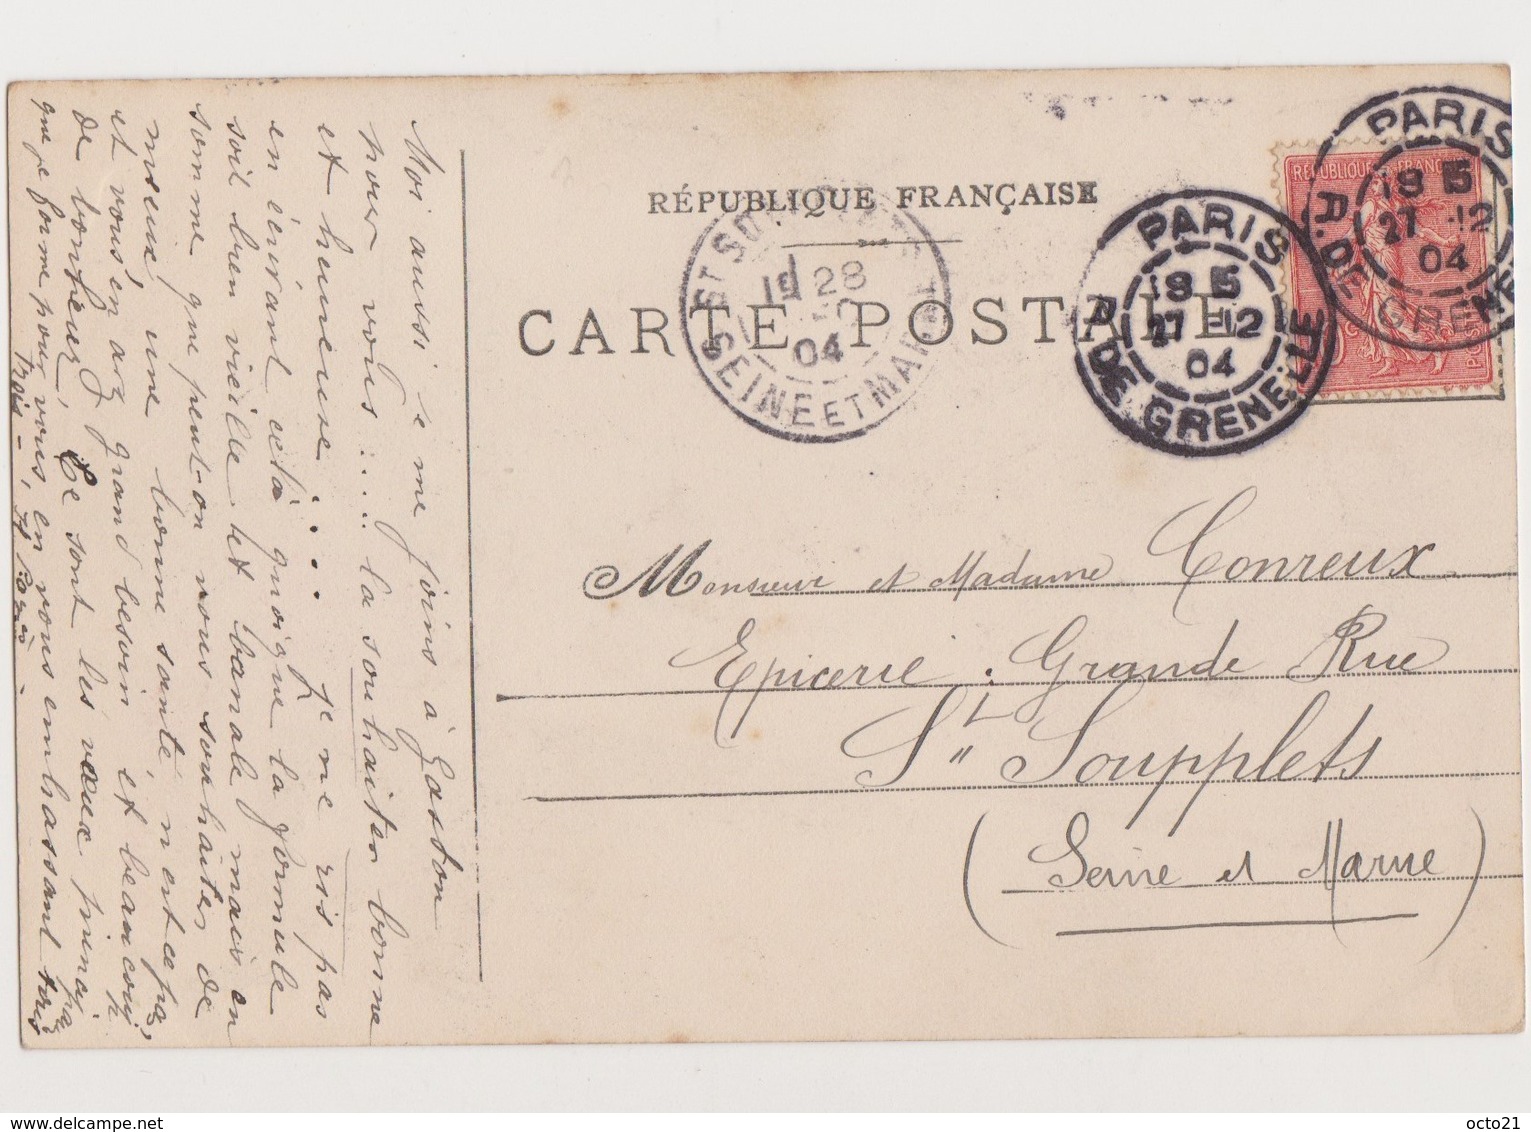 RÉPUBLIQUE FRANÇAISE
CARTE POSTALE
PARIS
19 5
27 -12
04
R. DE GRENELLE
PARIS
19 5
27 -12
04
R. DE GRENELLE
REPUBLIQUE FRANÇAISE
19 28
04
SEINE ET MARNE
Monsieur et Madame Conreux
Epicerie. Grande Rue
St Soupplets
(Seine et Marne)
Moi aussi je me joins à Gaston
pour vous ..... la souhaiter bonne
et heureuse .... Je ne ris pas
en écrivant cela quoique la formule
soit bien vieille et banale mais en
somme que peut-on nous souhaiter de
mieux, une bonne santé, n'est ce pas,
et vous en avez grand besoin et beaucoup
de bonheur, Ce sont les vœux
que je forme pour vous en vous embrassant tous
trois -
octo21